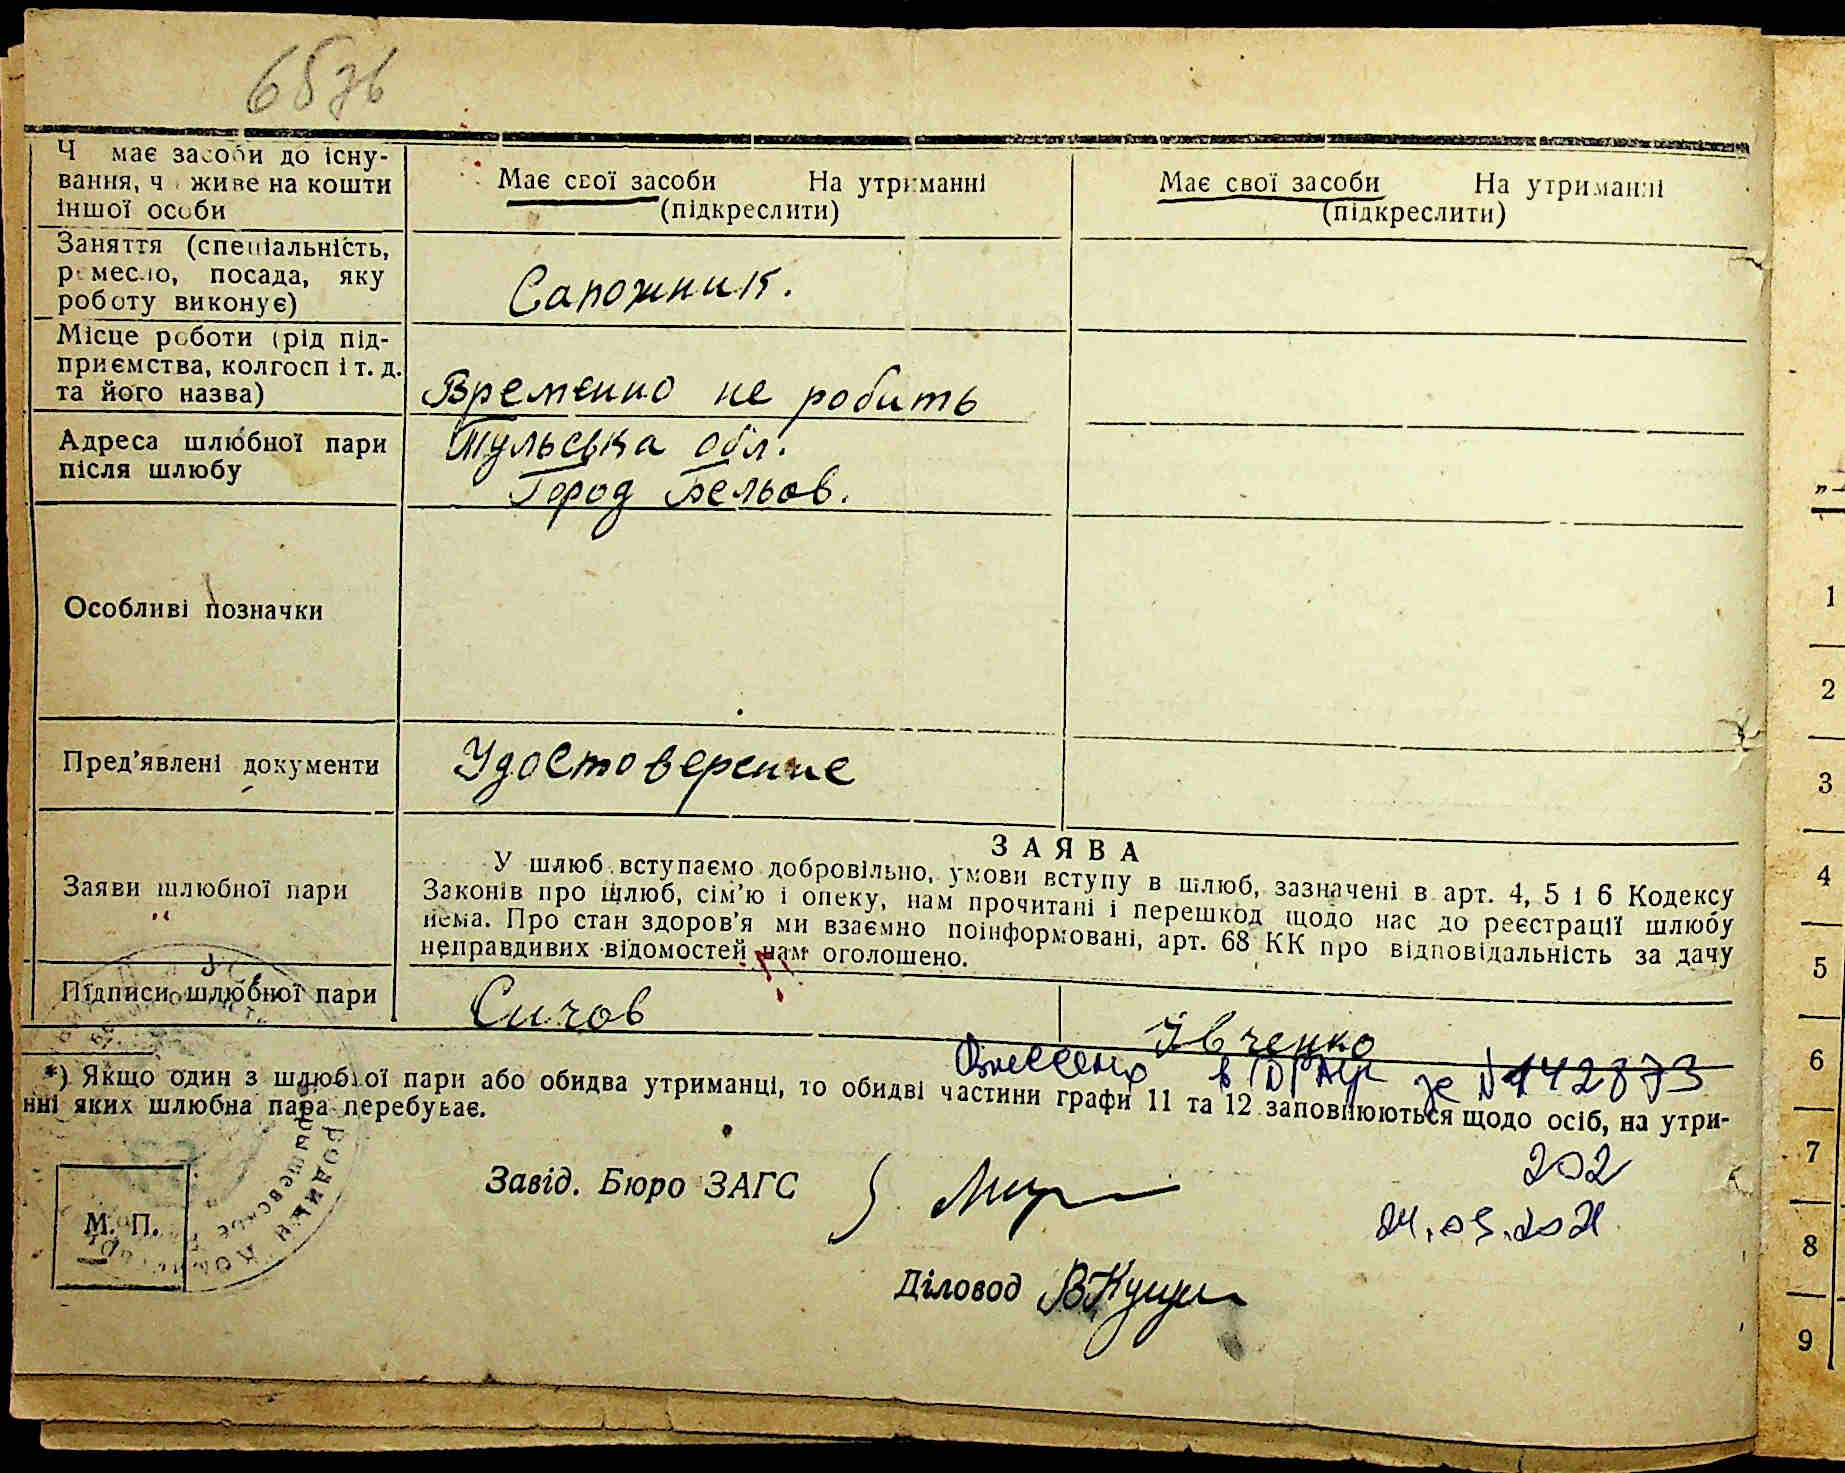 Ч має засоби до існу-
вання, ч живе на кошти
іншої особи
Має свої засоби На утриманні
(підкреслити)
Має свої засоби На утриманні
(підкреслити)
Заняття (спеціальність,
ремесло, посада, яку
роботу виконує)
Сапожник.
Місце роботи (рід під-
приємства, колгосп і т. д.
та його назва)
Временно не робить
Адреса шлюбної пари
після шлюбу
Тульська обл.
Город Бельов.
Особливі позначки
Пред'явлені документи
Удостоверение
Заяви шлюбної пари
ЗАЯВА
У шлюб вступаємо добровільно, умови вступу в шлюб, зазначені в арт. 4, 5 і 6 Кодексу
Законів про шлюб, сім'ю і опеку, нам прочитані і перешкод щодо нас до реєстрації шлюбу
нема. Про стан здоров'я ми взаємно поінформовані, арт. 68 КК про відповідальність за дачу
неправдивих відомостей нам оголошено.
Підписи шлюбної пари
Сичов
Івченко
в ДРАЦС за №142873
*) Якщо один з шлюбної пари або обидва утриманці, то обидві частини графи 11 та 12 заповнюються щодо осіб, на утри-
нні яких шлюбна пара перебуває.
202
24.05.2021
Завід. Бюро ЗАГС
М. П.
Діловод
1
2
3
4
5
6
7
8
9